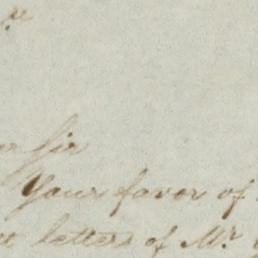 Sir
Your favor of
letters of Mr